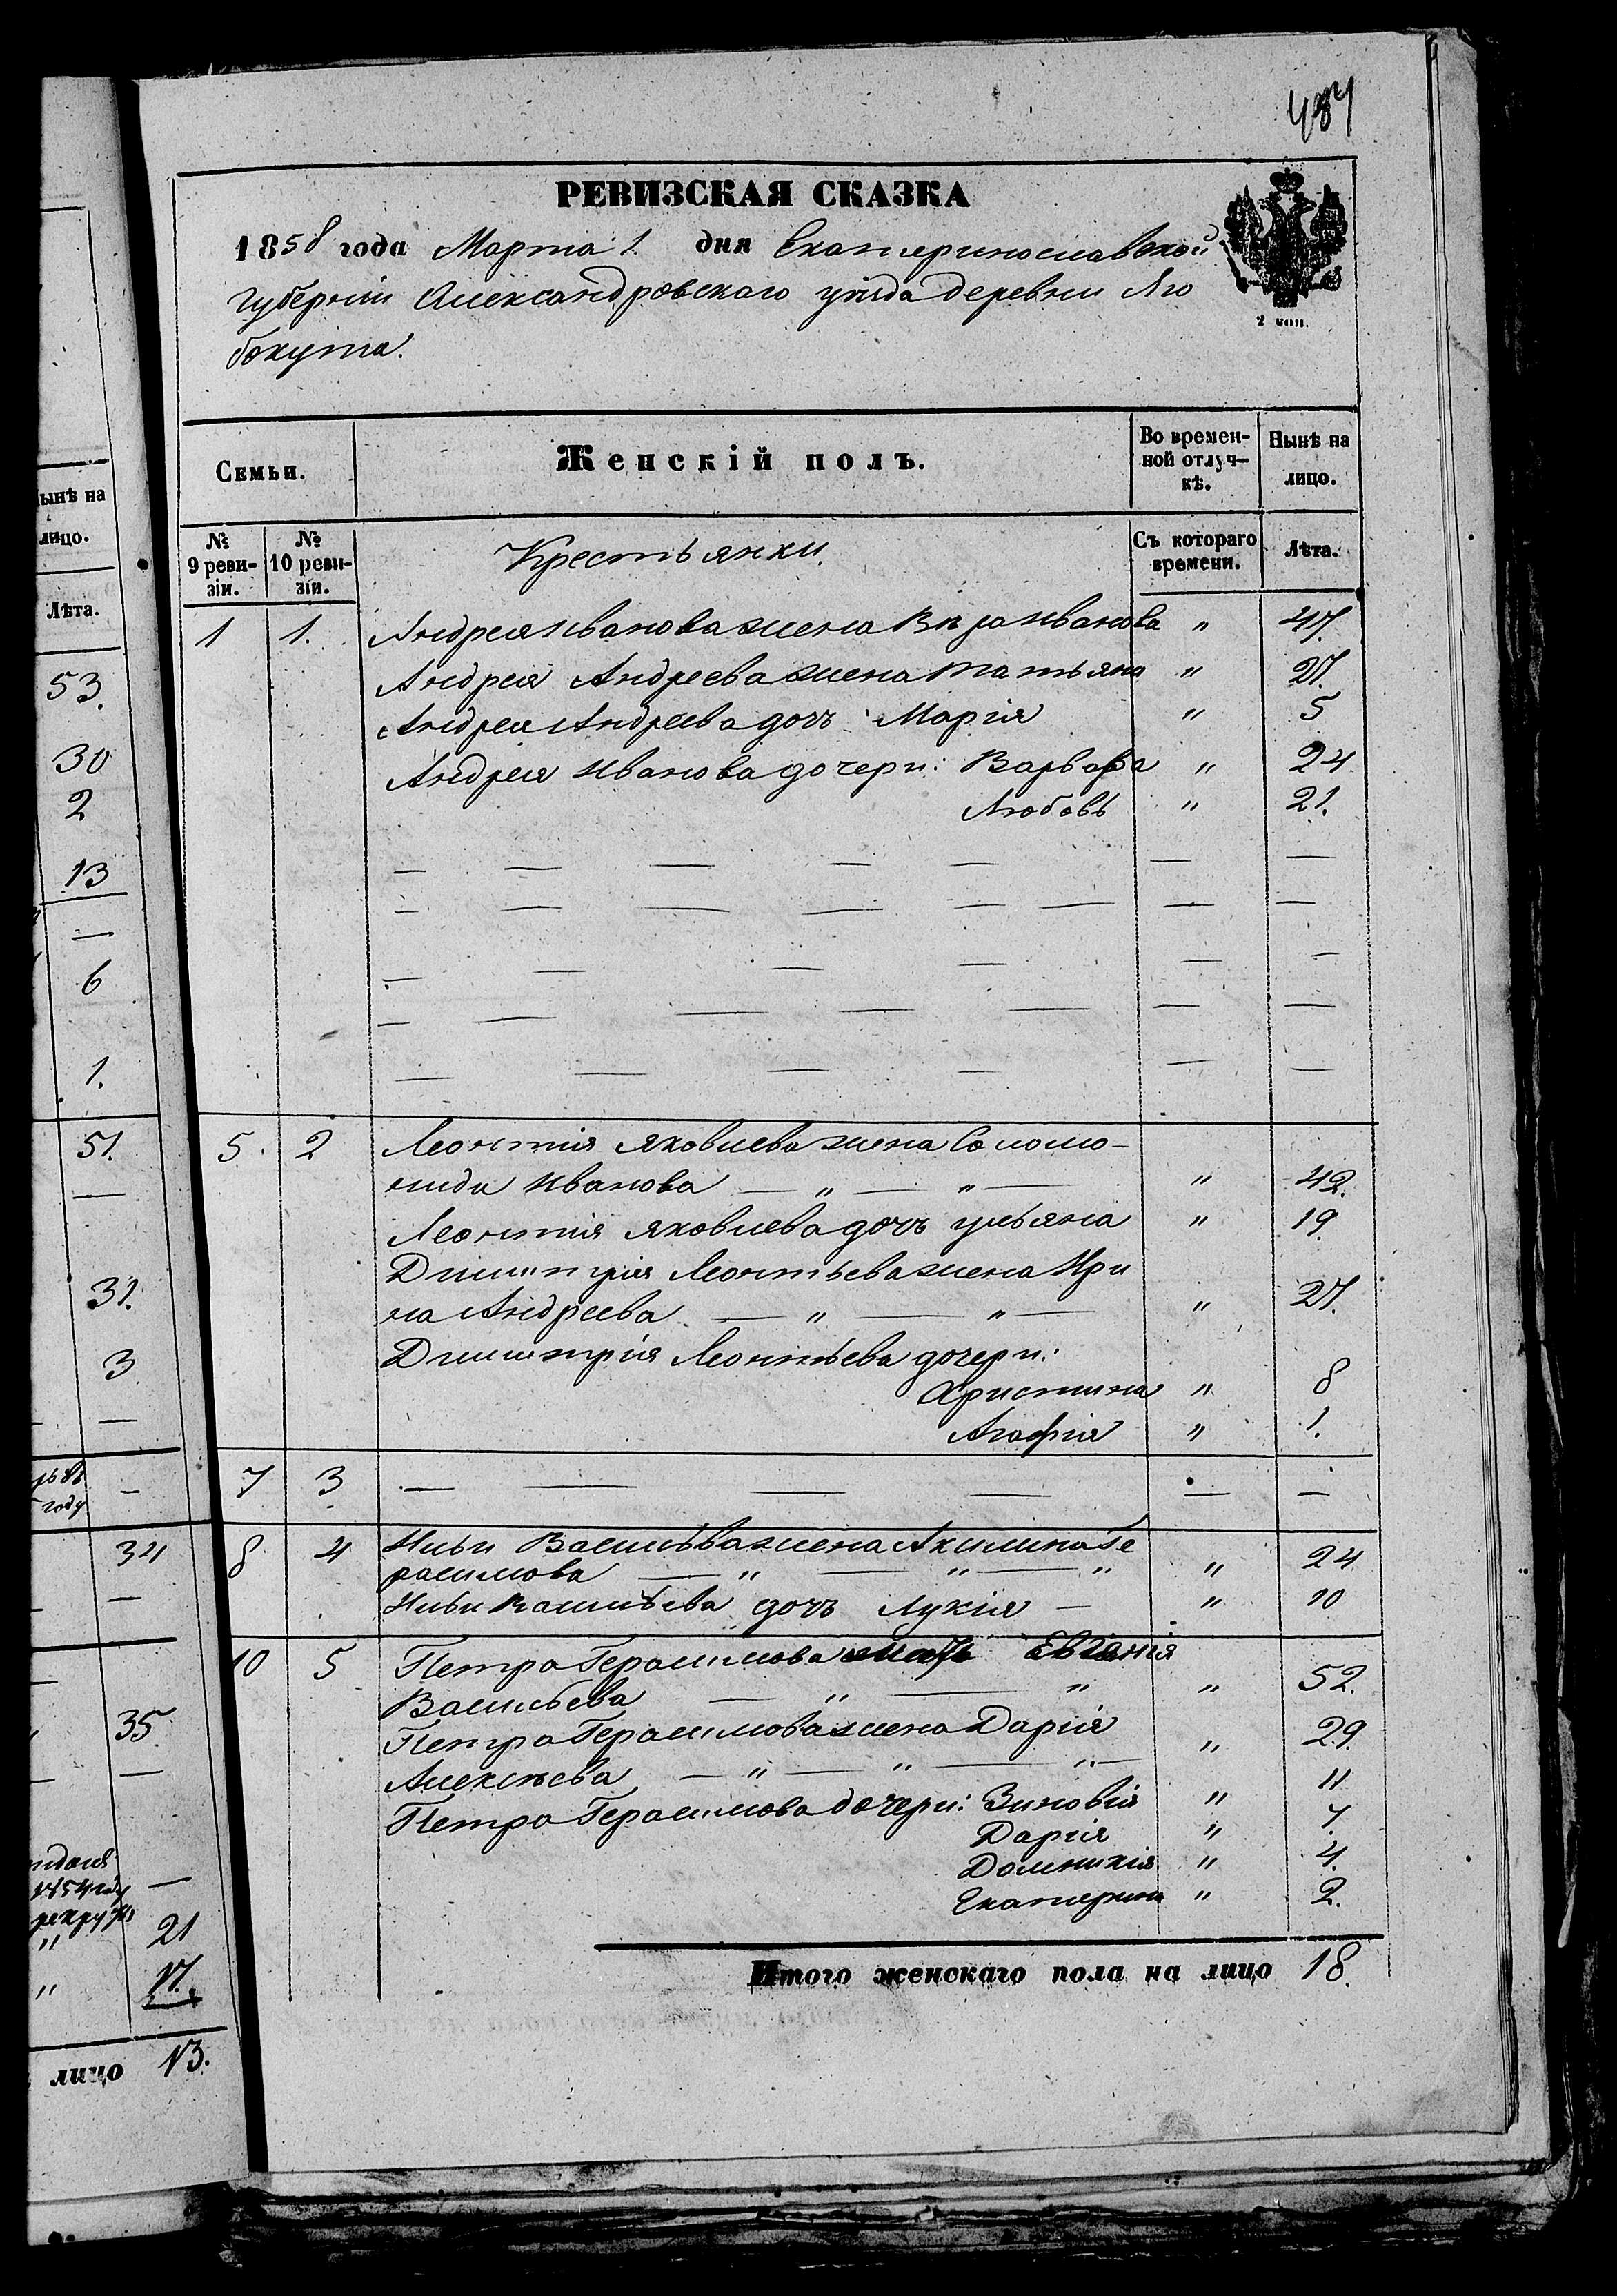 484
РЕВИЗСКАЯ СКАЗКА
1858 года Марта 1 дня Екатеринославской
губерніи Александровскаго уѣзда деревни Яго
бокута.
2 коп.
Семьи. Женскій полъ. Во времен-ной отлуч-кѣ. Нынѣ на лицо.
№ 9 реви-зіи. № 10 реви-зіи. Крестьянки. Съ котораго времени. Лѣта.
1 1. Андрея Иванова жена Вѣра Иванова " 47.
Андрея Андреева жена Татьяна " 27.
Андрея Андреева дочь Марія " 5
Андрея Иванова дочери: Варвара " 24
Любовь " 21.
5. 2 Леонтія Яковлева жена Соломо-
нида Иванова — " — " — " 42.
Леонтія Яковлева дочь Ульяна " 19.
Дмитрія Леонтьева жена Ири
на Андреева — " — " — " 27.
Дмитрія Леонтьева дочери:
Христина " 8
Агафія " 1.
7 3 — — — — — —
8 4 Ильи Васильева жена Акилина Ге
расимова — " — " — " " 24
Ильи Васильева дочь Лукія — " 10
10 5 Петра Герасимова мать Евгенія
Васильева — " — " " 52.
Петра Герасимова жена Дарія " 29.
Алексѣева — " — " — " —
Петра Герасимова дочери: Зиновія " 11
Дарія " 7.
Домникія " 4.
Екатерина " 2.
Итого женскаго пола на лицо 18.
ынѣ на
лицо.
Лѣта.
53.
30
2
13
—
6
1.
51.
—
31.
3
—
году —
34
—
35.
—
1854 году —
" 21
" 17.
лицо 13.